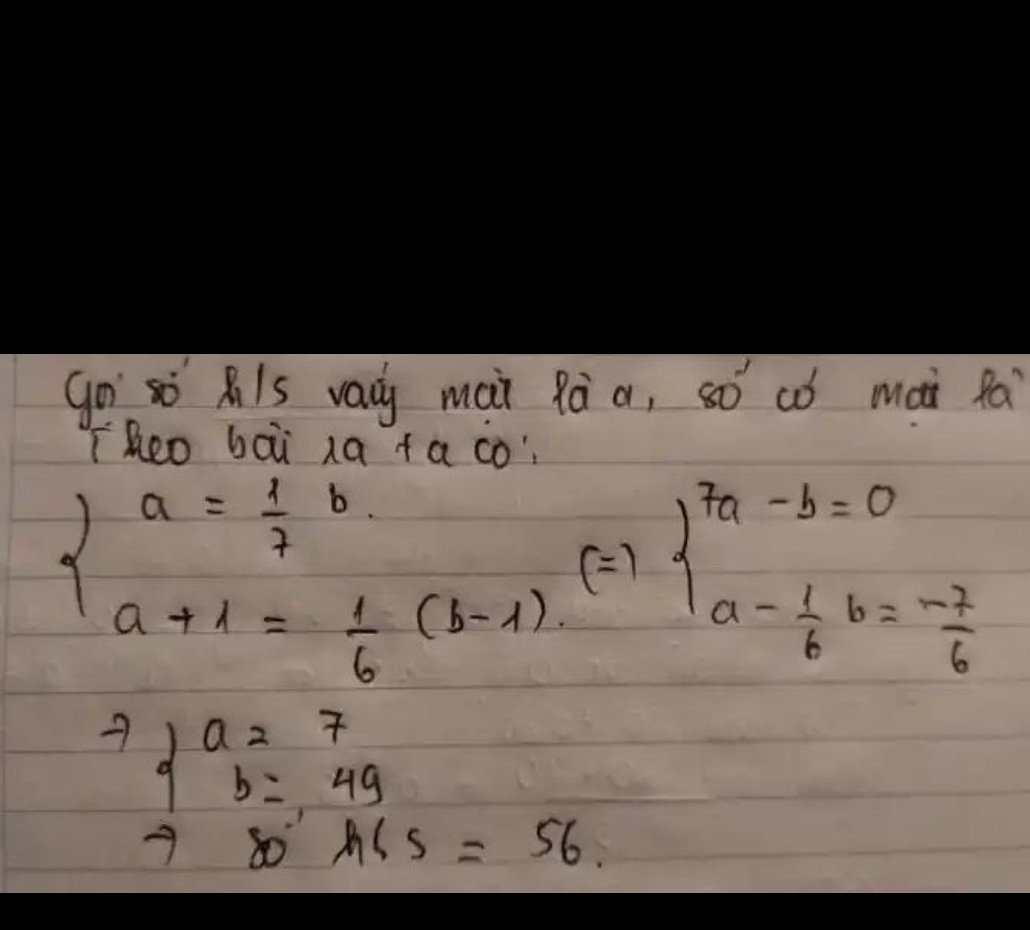 Gọi số h/s vắng mặt là a, số có mặt là
Theo bài ra ta có:
a = 1/7 b.
a + 1 = 1/6 (b-1).
(=)
7a - b = 0
a - 1/6 b = -7/6
→ a = 7
b = 49
→ số h/s = 56.